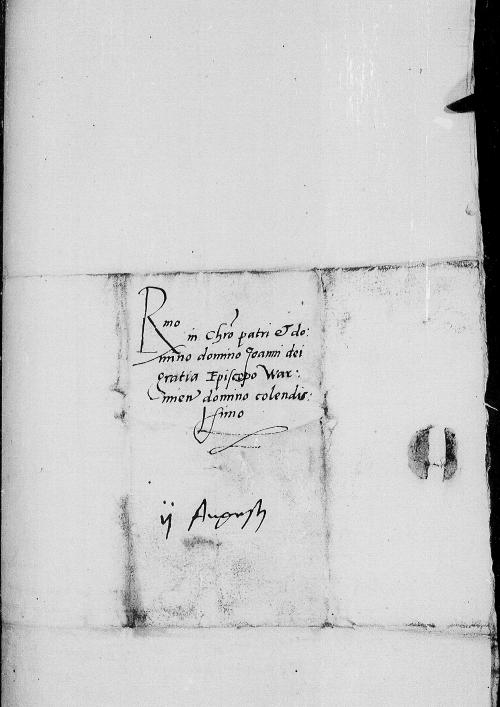 Rmo
in Chro patri et do:
mino domino Joanni dei
gratia Episcopo War:
mien domino colendis:
simo
ij Augusti